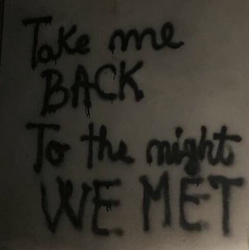 Take me
BACK
To the night
WE MET